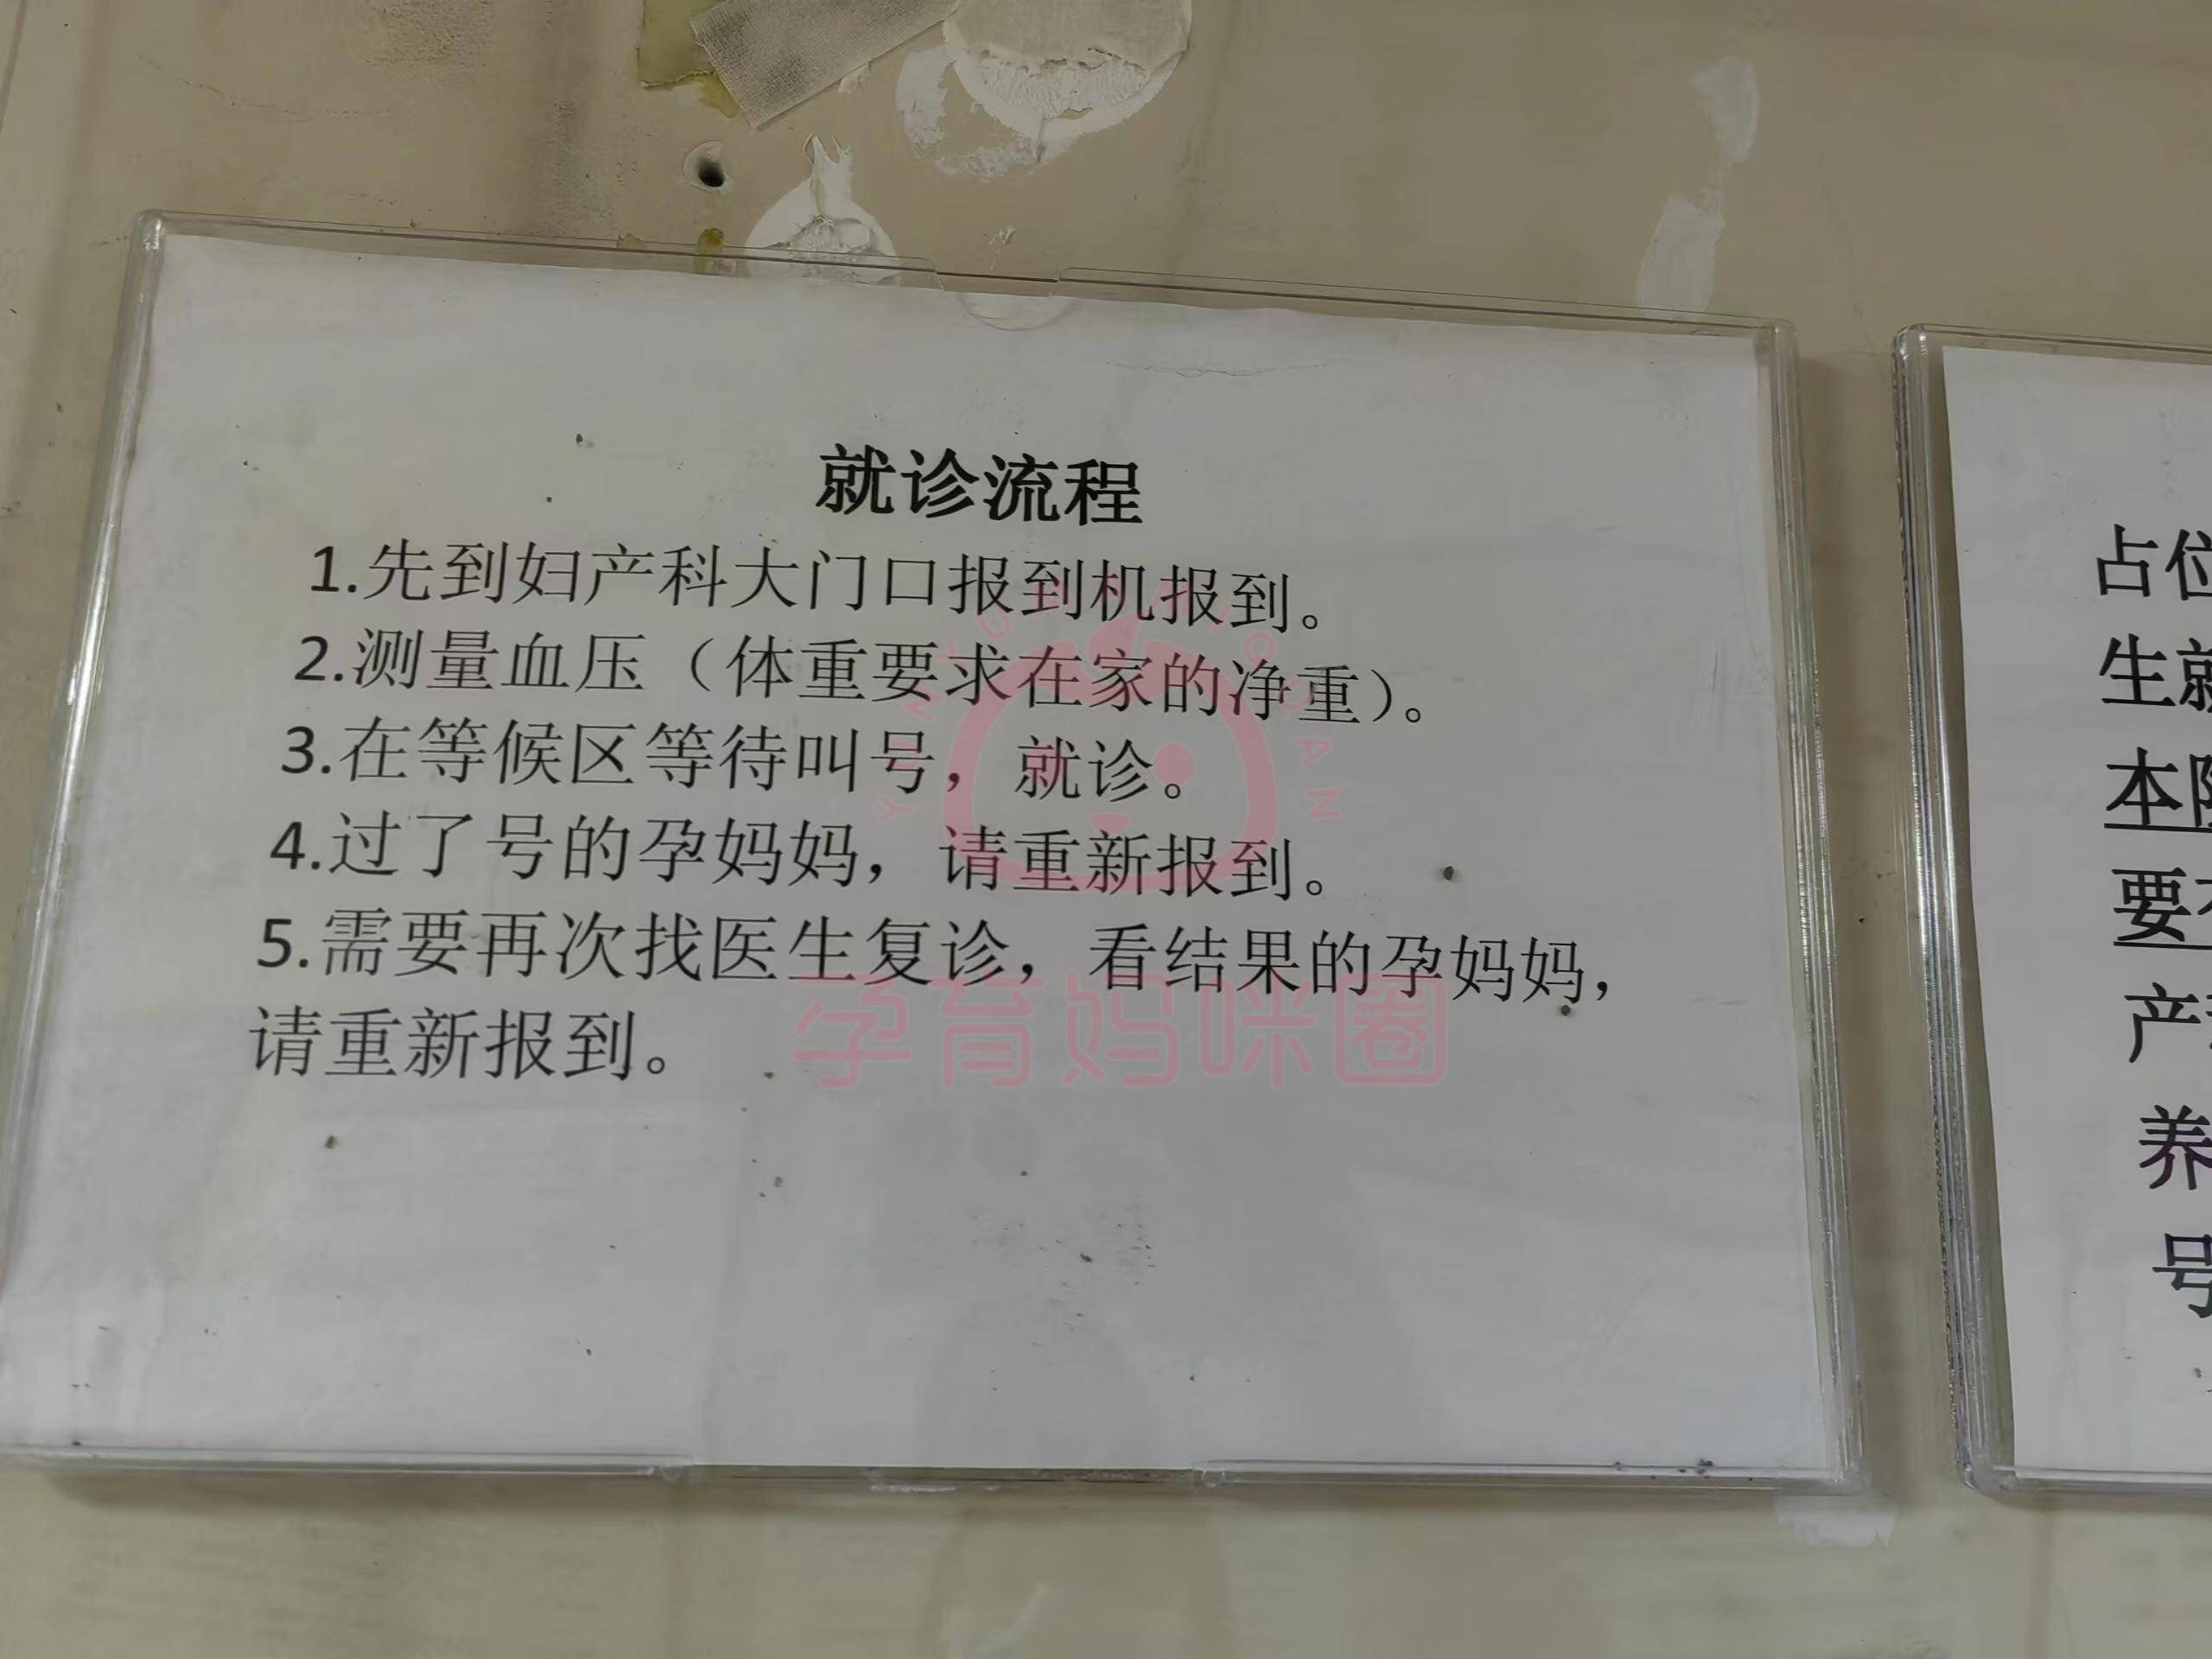 就诊流程
1.先到妇产科大门口报到机报到。
2.测量血压（体重要求在家的净重）。
3.在等候区等待叫号，就诊。
4.过了号的孕妈妈，请重新报到。
5.需要再次找医生复诊，看结果的孕妈妈，
请重新报到。
孕育妈咪圈
占位
生就
本院
要
产
养
号